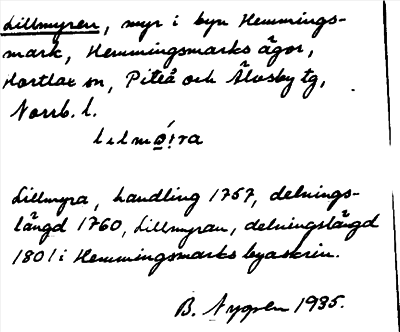 Lillmyren, myr i byn Hemmings-
mark, Hemmingsmarks ägor,
Hortlax sn, Piteå och Älvsby tg,
Norrb. l.
Lillmyra, handling 1757, delnings-
längd 1760, Lillmyran, delningslängd
1801 i Hemmingsmarks byaskrin.
B. Nygren 1935.